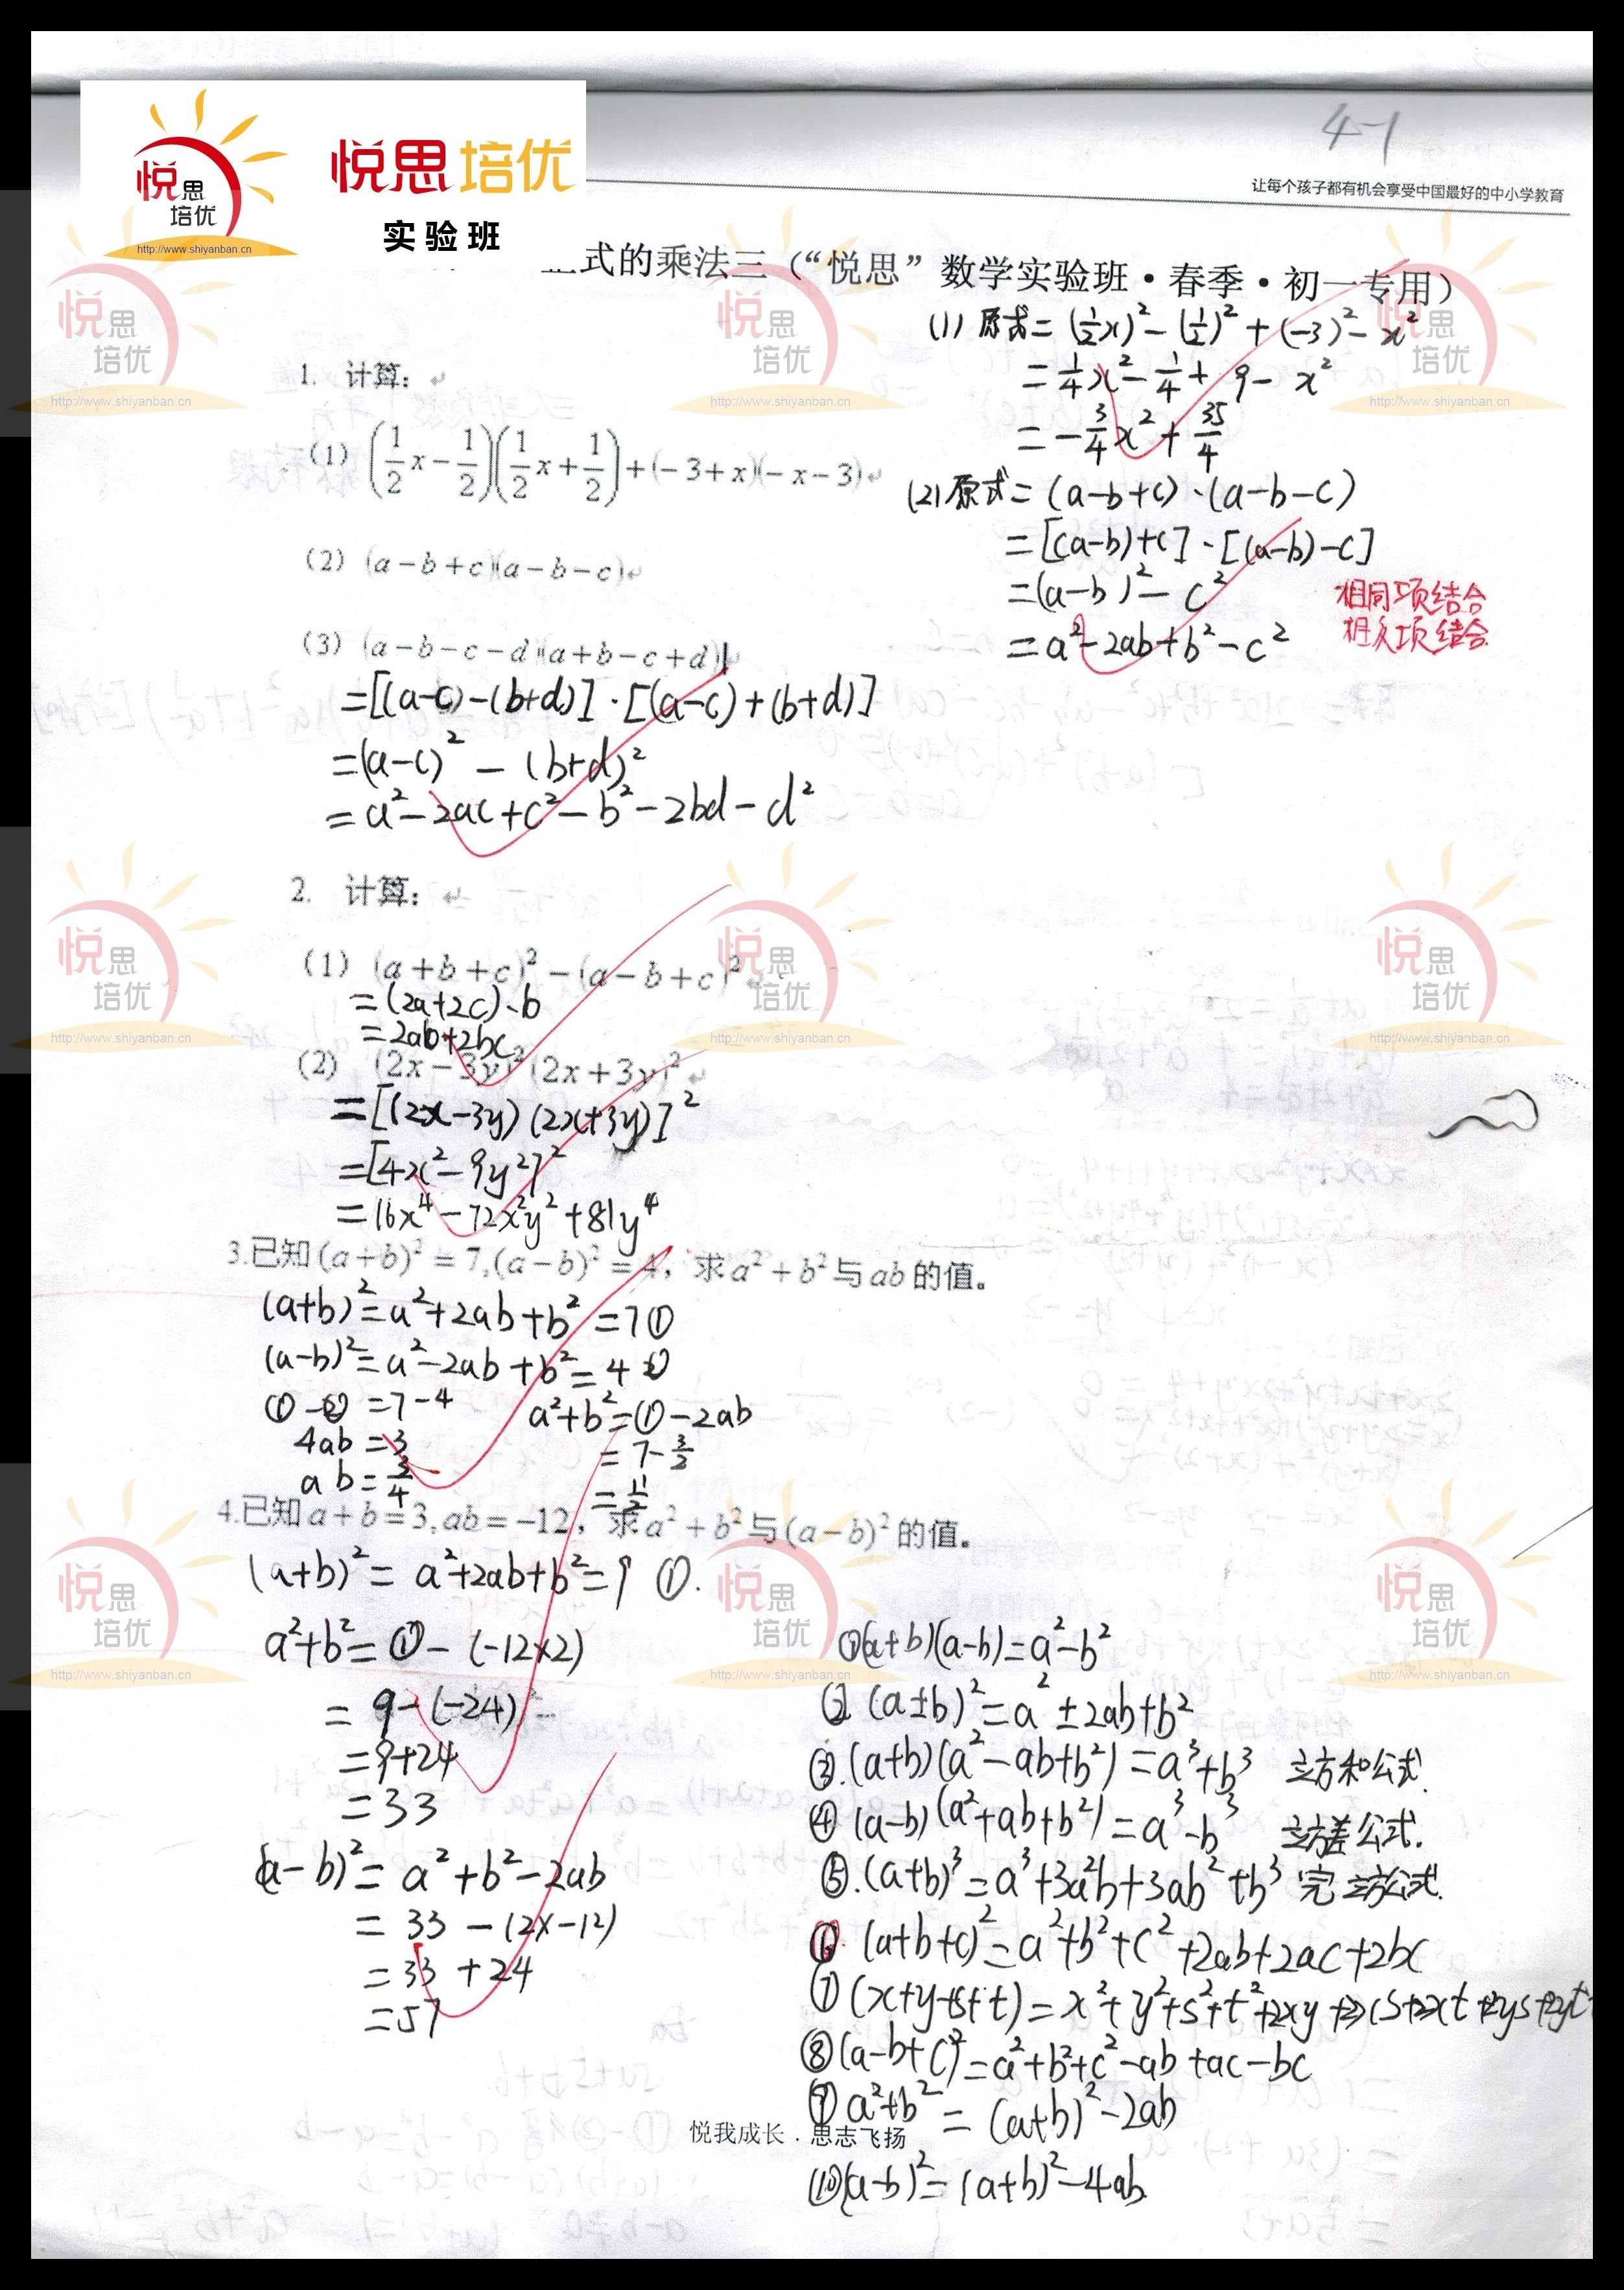 4-1
悦思培优
实验班
悦思
培优
http://www.shiyanban.cn
让每个孩子都有机会享受中国最好的中小学教育
式的乘法三（“悦思”数学实验班·春季·初一专用）
1. 计算：
(1) (1/2x-1/2)(1/2x+1/2)+(-3+x)(-x-3)
(2) (a-b+c)(a-b-c)
(3) (a-b-c-d)(a+b-c+d)
=[(a-c)-(b+d)]·[(a-c)+(b+d)]
=(a-c)²-(b+d)²
=a²-2ac+c²-b²-2bd-d²
(1) 原式=(1/2x)²-(1/2)²+(-3)²-x²
=1/4x²-1/4+9-x²
=-3/4x²+35/4
(2) 原式=(a-b+c)·(a-b-c)
=[(a-b)+c]·[(a-b)-c]
=(a-b)²-c²
=a²-2ab+b²-c²
相同项结合
相反项结合
2. 计算：
(1) (a+b+c)²-(a-b+c)²
=(2a+2c)·b
=2ab+2bc
(2) (2x-3y)²(2x+3y)²
=[(2x-3y)(2x+3y)]²
=[4x²-9y²]²
=16x⁴-72x²y²+81y⁴
3.已知(a+b)²=7,(a-b)²=4，求a²+b²与ab的值。
(a+b)²=a²+2ab+b²=7①
(a-b)²=a²-2ab+b²=4②
①-②=7-4
4ab=3
ab=3/4
a²+b²=①-2ab
=7-3/2
=11/2
4.已知a+b=3,ab=-12，求a²+b²与(a-b)²的值。
(a+b)²=a²+2ab+b²=9 ①.
a²+b²=①-(-12×2)
=9-(-24)
=9+24
=33
(a-b)²=a²+b²-2ab
=33-(2×-12)
=33+24
=57
①(a+b)(a-b)=a²-b²
② (a±b)²=a²±2ab+b²
③.(a+b)(a²-ab+b²)=a³+b³ 立方和公式.
④ (a-b)(a²+ab+b²)=a³-b³ 立方差公式.
⑤.(a+b)³=a³+3a²b+3ab²+b³ 完立方公式.
⑥. (a+b+c)²=a²+b²+c²+2ab+2ac+2bc
⑦ (x+y+s+t)=x²+y²+s²+t²+2xy+2xs+2xt+2ys+2yt
⑧(a-b+c)²=a²+b²+c²-ab+ac-bc
⑨ a²+b²=(a+b)²-2ab
⑩(a-b)²=(a+b)²-4ab
悦我成长．思志飞扬